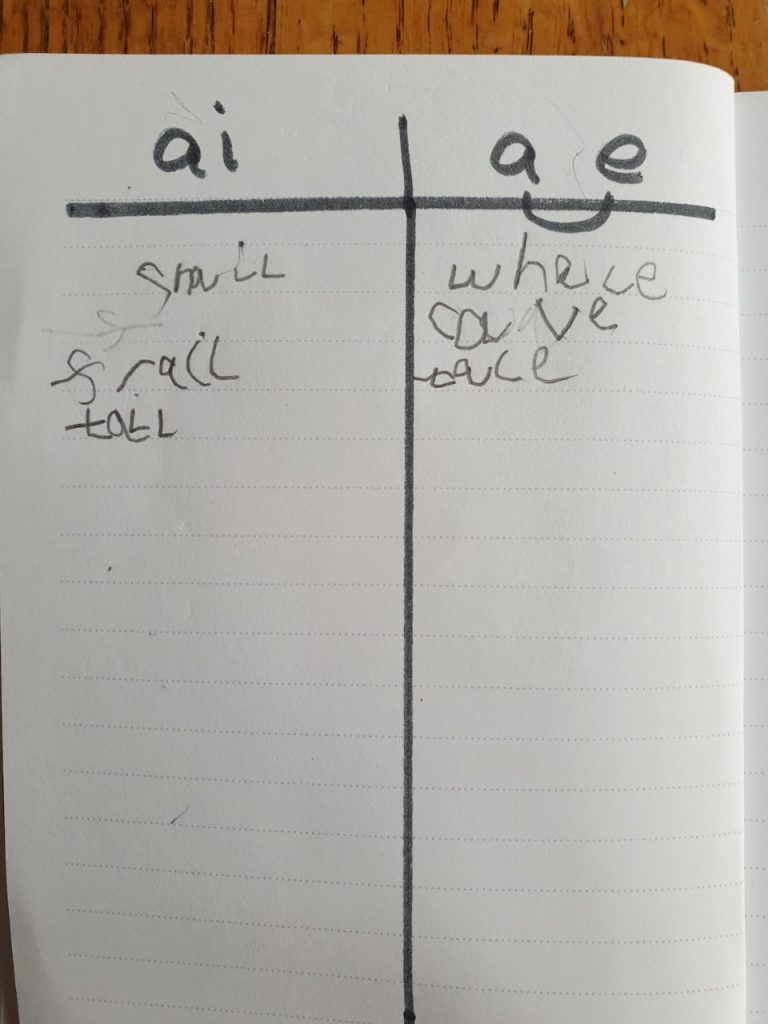 ai
snail
frail
tail
a e
whale
cave
tale